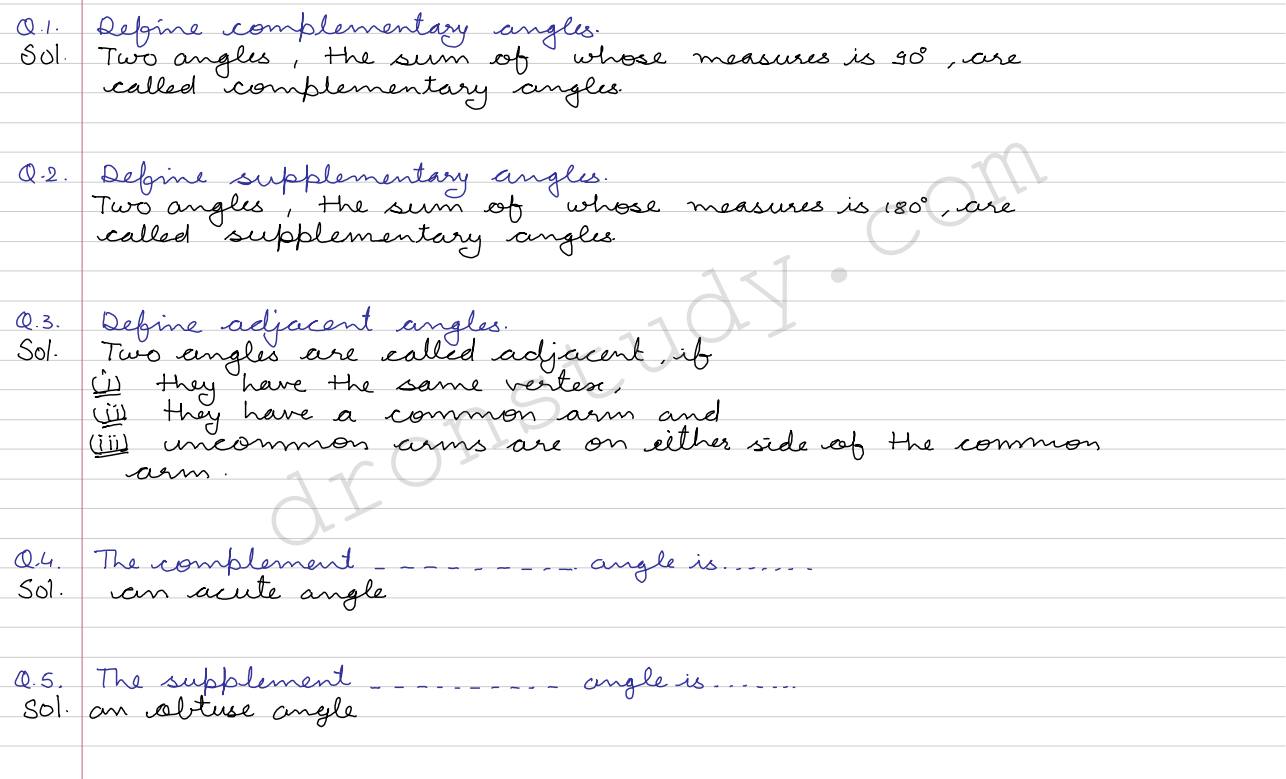 Q.1. Define complementary angles.
Sol. Two angles, the sum of whose measures is 90°, are
called complementary angles.
Q.2. Define supplementary angles.
Two angles, the sum of whose measures is 180°, are
called supplementary angles.
Q.3. Define adjacent angles.
Sol. Two angles are called adjacent, if
(i) they have the same vertex,
(ii) they have a common arm and
(iii) uncommon arms are on either side of the common
arm.
Q.4. The complement ---------- angle is.......
Sol. an acute angle
Q.5. The supplement ---------- angle is.......
Sol. an obtuse angle
dronstudy.com